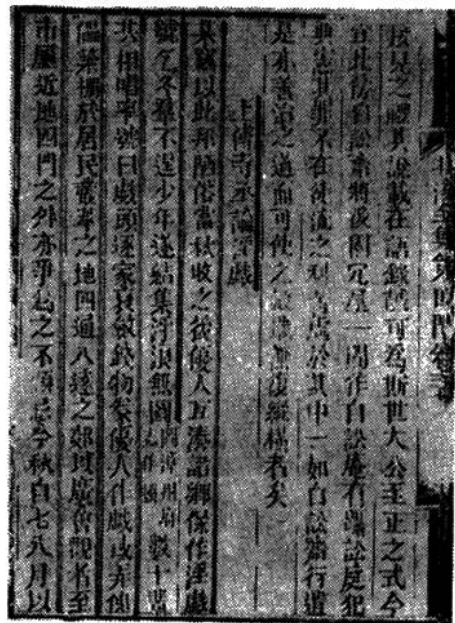 之體其說載在語錄誠可為斯世大公至正之式今
自訟齋將後閑冗屋一間作自訟庵有囂訟庭犯
典憲其罪不在徒流之列者寓於其中一如自訟齋行遣
是亦善治之道而可使之無復縱橫者矣
上傅寺丞論淫戲
某竊以此邦陋俗當秋收之後優人互湊諸鄉保作淫戲
號乞冬羣不逞少年遂結集浮浪無圖數十輩
共相唱率號曰戲頭逐家裒斂錢物豢優人作戲或弄傀
儡築棚於居民叢萃之地四通八達之郊以廣會觀者至
市廛近地四門之外亦爭為之不顧忌今秋自七八月以